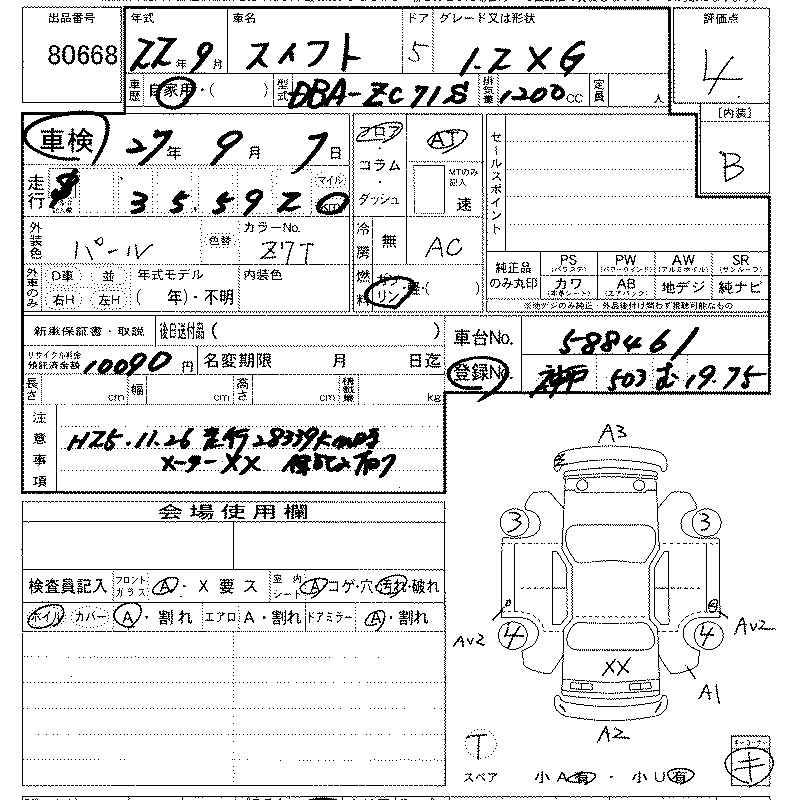 出品番号 年式 車名 ドア グレード又は形状 評価点
80668 22年9月 スイフト 5 1.2XG 4
車歴 自家用・( ) 型式 DBA-ZC71S 排気量 1200cc 定員 人
[内装]
B
車検 27年9月7日 フロア・コラム・ダッシュ AT セールスポイント
走行 $ 35592 マイル MTのみ記入 速
外装色 パール 色替 カラーNo. Z7T 冷房 無 AC
純正品のみ丸印 PS PW AW SR
カワ AB 地デジ 純ナビ
外車のみ D車 並 年式モデル 内装色 燃料 ガソリン・軽・( )
右H 左H ( 年)・不明
※地デジのみ純正
新車保証書・取説 後日送付品( ) 車台No. 588461
リサイクル料金預託済金額 10090円 名変期限 月 日迄 登録No. 神戸 503 む 19.75
長さ cm 幅 cm 高さ cm 積載量 kg
注意事項 H25.11.26 走行28339km時
メーターXX 保証書
会場使用欄
検査員記入 フロントガラス A・X要ス 室内シート A コゲ・穴・汚れ・破れ
ホイル カバー A・割れ エアロ A・割れ ドアミラー A・割れ
A3
3 3
AV2 4 4 AV2
XX
A1
A2
T
スペア 小A有・小U有 キ